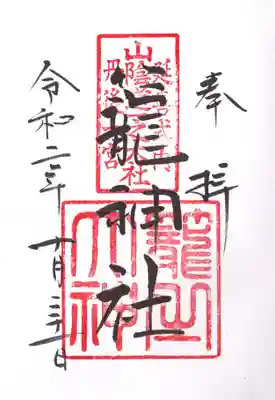 奉拝
延喜式内
丹後一宮
籠神社
籠之大神
令和二年十月三十一日